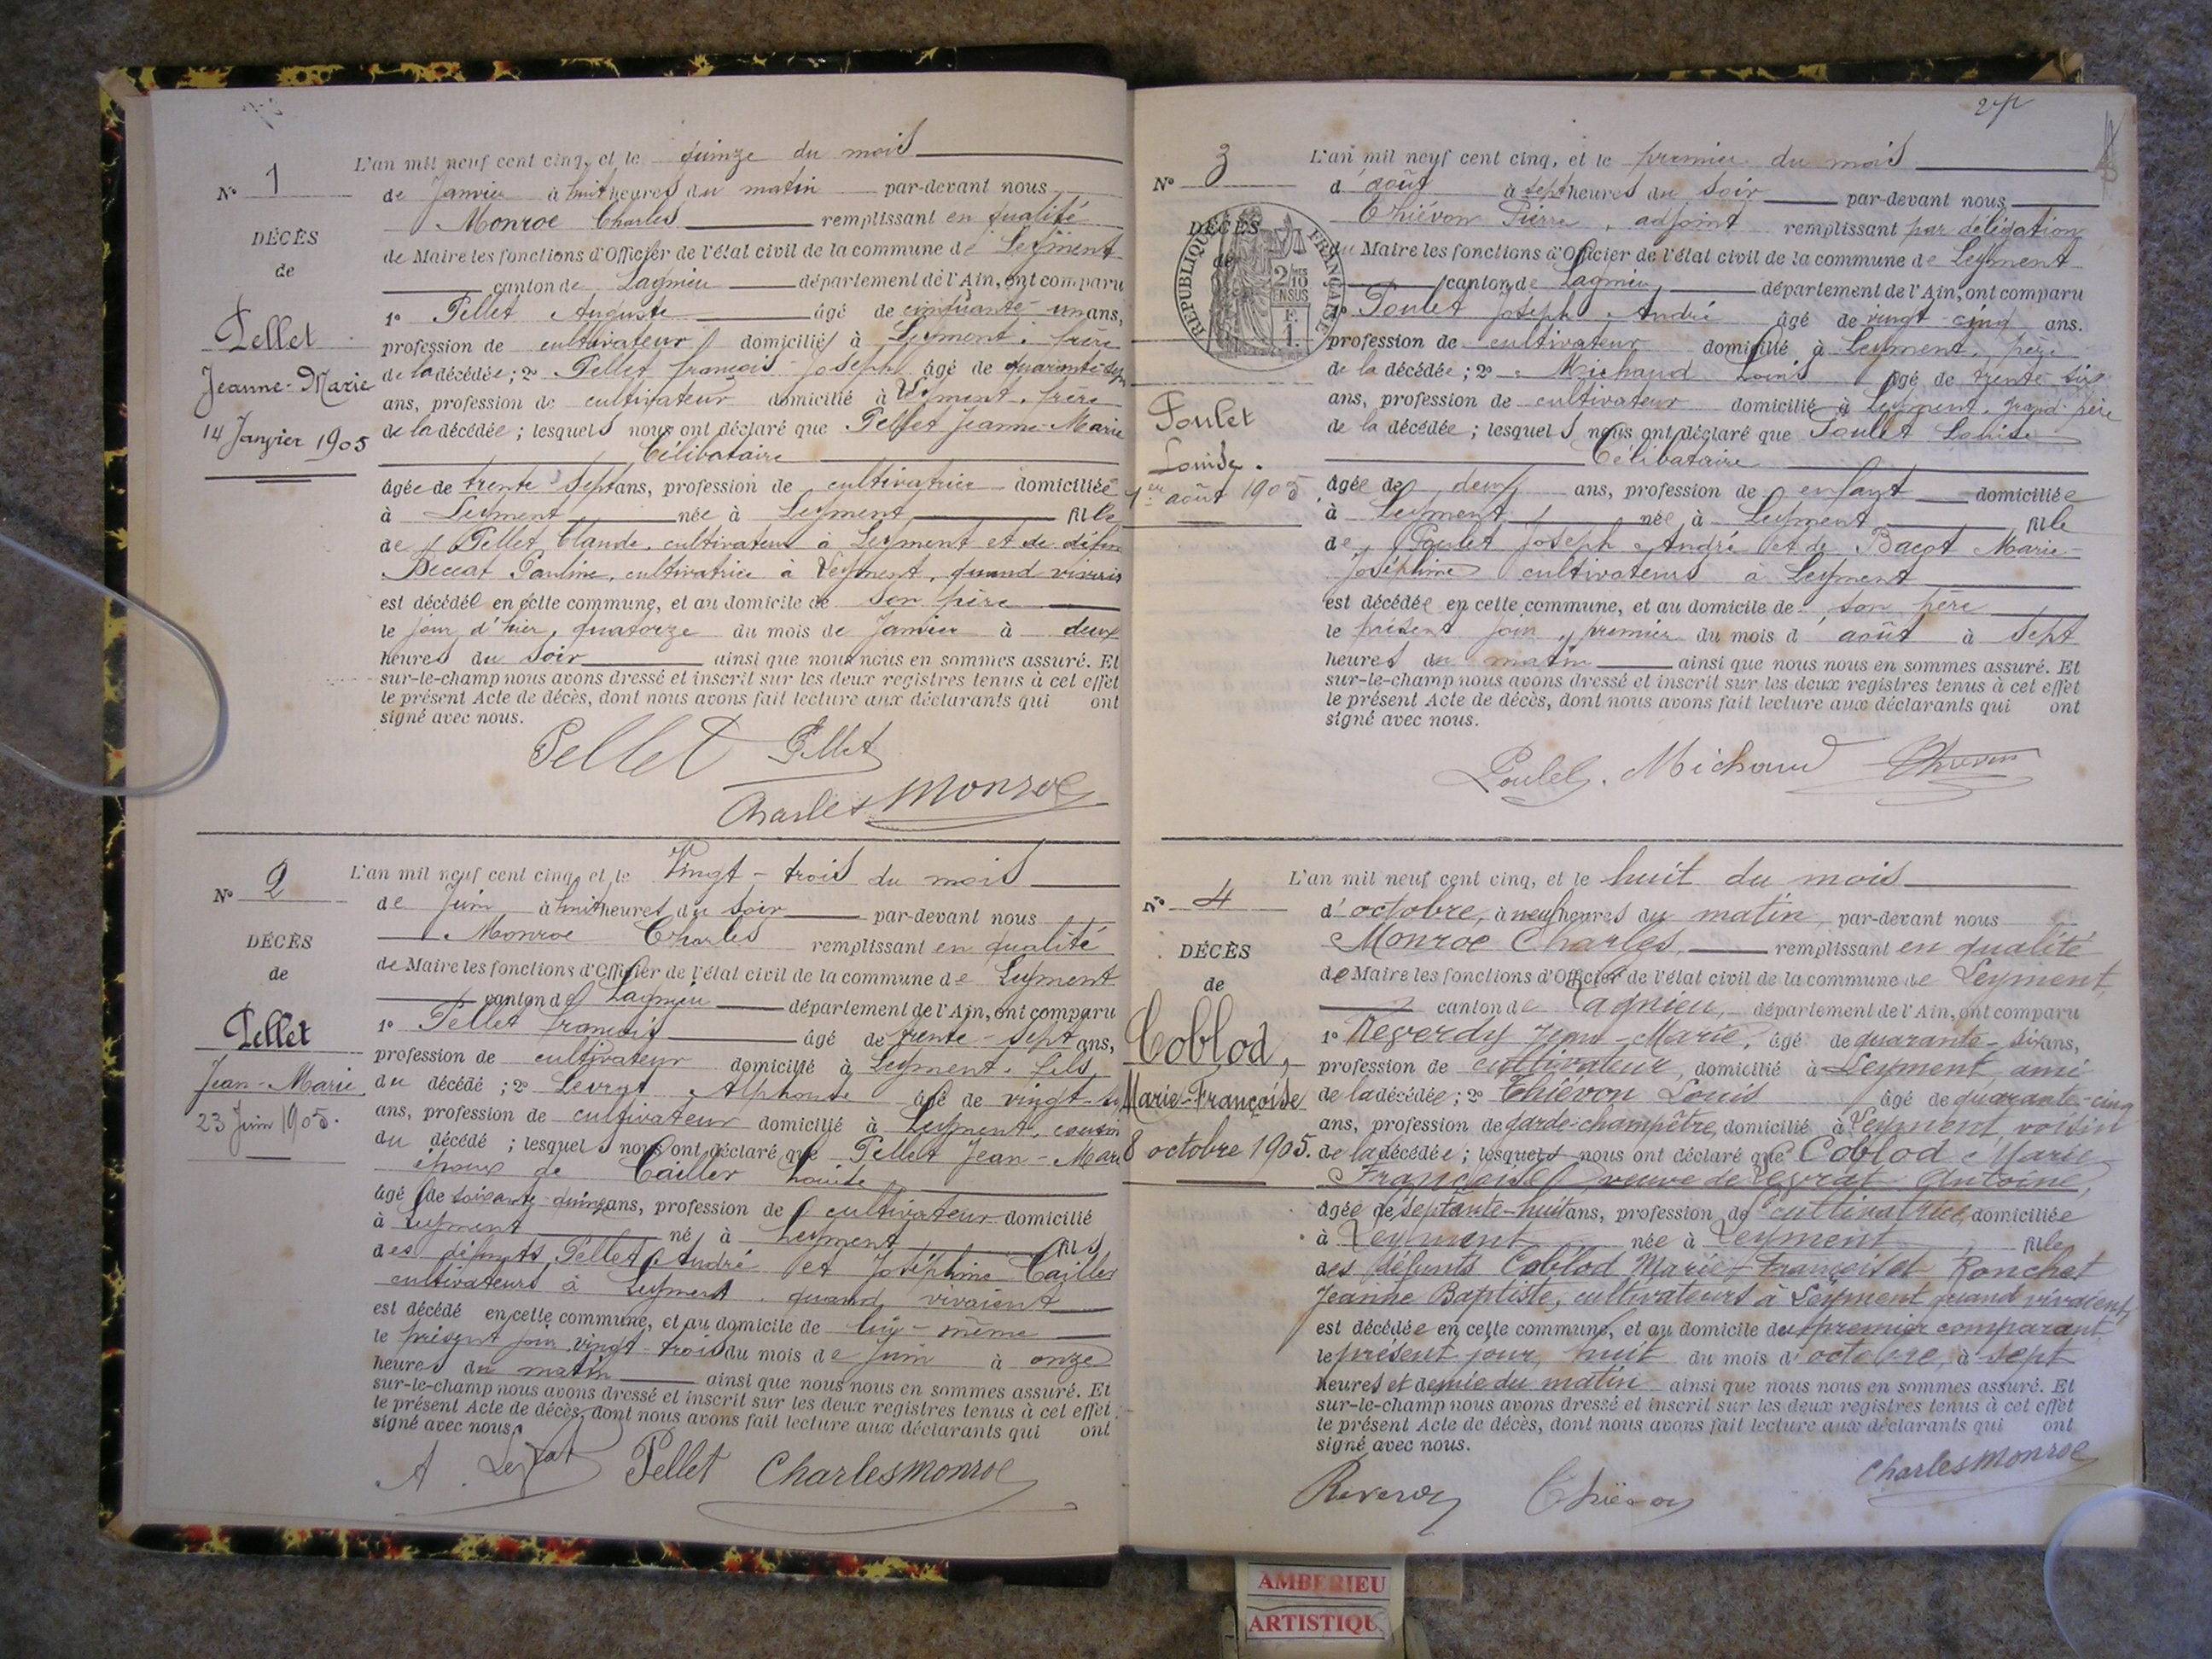 N° 1
DÉCÈS
de
Pellet
Jeanne-Marie
14 Janvier 1905
L'an mil neuf cent cinq, et le quinze du mois
de Janvier à huit heures du matin par-devant nous
Monroe Charles remplissant en qualité
de Maire les fonctions d'Officier de l'état civil de la commune de Leyment
canton de Lagnieu département de l'Ain, ont comparu
1° Pellet Auguste âgé de cinquante-un ans,
profession de cultivateur domicilié à Leyment, frère
de la décédée; 2° Pellet françois Joseph âgé de quarante-sept
ans, profession de cultivateur domicilié à Leyment, frère
de la décédée; lesquels nous ont déclaré que Pellet Jeanne-Marie
Célibataire
âgée de trente sept ans, profession de cultivatrice domiciliée
à Leyment née à Leyment fille
de Pellet Claude, cultivateur à Leyment et de défunte
Beccat Pauline, cultivatrice à Leyment, quand vivait
est décédée en cette commune, et au domicile de son père
le jour d'hier, quatorze du mois de Janvier à deux
heures du soir ainsi que nous nous en sommes assuré. Et
sur-le-champ nous avons dressé et inscrit sur les deux registres tenus à cet effet
le présent Acte de décès, dont nous avons fait lecture aux déclarants qui ont
signé avec nous.
Pellet Pellet
Charles Monroe
N° 2
DÉCÈS
de
Pellet
Jean-Marie
23 Juin 1905.
L'an mil neuf cent cinq, et le Vingt-trois du mois
de Juin à huit heures du soir par-devant nous
Monroe Charles remplissant en qualité
de Maire les fonctions d'Officier de l'état civil de la commune de Leyment
canton de Lagnieu département de l'Ain, ont comparu
1° Pellet françois âgé de trente-sept ans,
profession de cultivateur domicilié à Leyment, fils
du décédé; 2° Levrat Alphonse âgé de vingt-
ans, profession de cultivateur domicilié à Leyment, cousin
du décédé; lesquels nous ont déclaré que Pellet Jean-Marie
époux de Cailler Louise
âgé de soixante-quinze ans, profession de cultivateur domicilié
à Leyment né à Leyment fils
des défunts Pellet André et Joséphine Cailler
cultivateurs à Leyment, quand vivaient
est décédé en cette commune, et au domicile de lui-même
le présent jour, vingt-trois du mois de Juin à onze
heures du matin ainsi que nous nous en sommes assuré. Et
sur-le-champ nous avons dressé et inscrit sur les deux registres tenus à cet effet
le présent Acte de décès, dont nous avons fait lecture aux déclarants qui ont
signé avec nous.
A. Levrat Pellet Charles Monroe
N° 3
DÉCÈS
de
RÉPUBLIQUE FRANÇAISE
2/10
EN SUS
Poulet
Louise.
1er août 1905
L'an mil neuf cent cinq, et le premier du mois
d'août à sept heures du soir par-devant nous
Thiévon Pierre, adjoint remplissant par délégation
du Maire les fonctions d'Officier de l'état civil de la commune de Leyment
canton de Lagnieu, département de l'Ain, ont comparu
1° Poulet Joseph André âgé de vingt-cinq ans.
profession de cultivateur domicilié à Leyment, père
de la décédée; 2° Michaud Louis âgé de trente six
ans, profession de cultivateur domicilié à Leyment, grand-père
de la décédée; lesquels nous ont déclaré que Poulet Louise
Célibataire
âgée de deux ans, profession de enfant domiciliée
à Leyment née à Leyment fille
de Poulet Joseph André et de Bacot Marie-
Joséphine cultivateurs à Leyment
est décédée en cette commune, et au domicile de son père
le présent jour, premier du mois d'août à sept
heures du matin ainsi que nous nous en sommes assuré. Et
sur-le-champ nous avons dressé et inscrit sur les deux registres tenus à cet effet
le présent Acte de décès, dont nous avons fait lecture aux déclarants qui ont
signé avec nous.
Poulet. Michaud Thiévon
N° 4
DÉCÈS
de
Coblod,
Marie-Françoise
8 octobre 1905.
L'an mil neuf cent cinq, et le huit du mois
d'octobre, à neuf heures du matin, par-devant nous
Monroe Charles, remplissant en qualité
de Maire les fonctions d'Officier de l'état civil de la commune de Leyment,
canton de Lagnieu, département de l'Ain, ont comparu
1° Reverdy Jean-Marie, âgé de quarante-six ans,
profession de cultivateur, domicilié à Leyment, ami
de la décédée; 2° Thiévon Louis âgé de quarante-cinq
ans, profession de garde-champêtre, domicilié à Leyment, voisin
de la décédée; lesquels nous ont déclaré que Coblod Marie
Françoise, veuve de Levrat Antoine,
âgée de septante-huit ans, profession de cultivatrice, domiciliée
à Leyment née à Leyment fille
des défunts Coblod Marie-François et Ronchet
Jeanne Baptiste, cultivateurs à Leyment quand vivaient,
est décédée en cette commune, et au domicile du premier comparant
le présent jour, huit du mois d'octobre, à sept
heures et demie du matin ainsi que nous nous en sommes assuré. Et
sur-le-champ nous avons dressé et inscrit sur les deux registres tenus à cet effet
le présent Acte de décès, dont nous avons fait lecture aux déclarants qui ont
signé avec nous.
Reverdy Thiévon Charles Monroe
AMBERIEU
ARTISTIQU